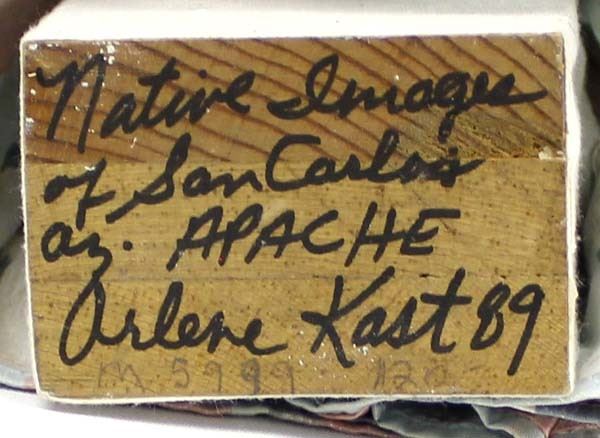 Native Images
of San Carlos
az. APACHE
Arlene Kast 89
M 5999 120-